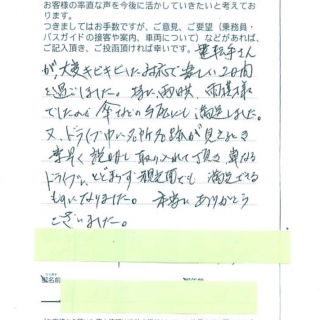 お客様の率直な声を今後に活かしていきたいと考えてお
ります。
つきましてはお手数ですが、ご意見、ご要望（乗務員・
バスガイドの接客や案内、車両について）などがあれば、
ご記入頂き、ご投函頂ければ幸いです。運転手さん
が大変キビキビした対応で楽しい2日間
を過ごしました。特に雨時、雨模様
でしたので傘などの手配にも満足しました。
又、ドライブ中に名所名跡が見えれば
素早く説明し取り入れて頂き単なる
ドライブにとどまらず観光面でも満足できる
ものになりました。本当にありがとう
ございました。
名前